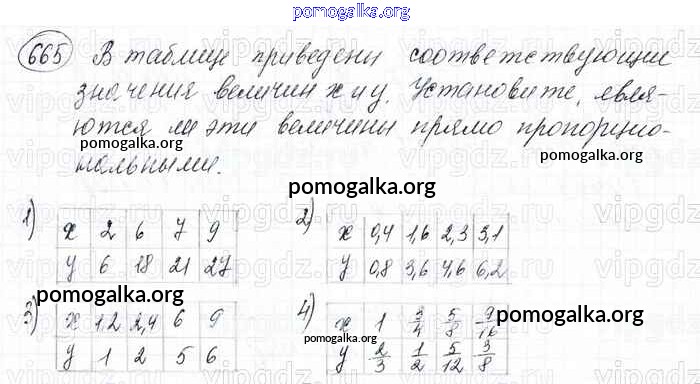 pomogalka.org
665 В таблице приведены соответствующие
значения величин x и y. Установите, явля-
ются ли эти величины прямо пропорцио-
нальными.
pomogalka.org
pomogalka.org
1) x 2 6 7 9
y 6 18 21 27
2) x 0,4 1,6 2,3 3,1
y 0,8 3,6 4,6 6,2
pomogalka.org
pomogalka.org
3) x 1,2 2,4 6 9
y 1 2 5 6
4) x 1 3/4 5/8 9/16
y 2/3 1/2 5/12 3/8
pomogalka.org